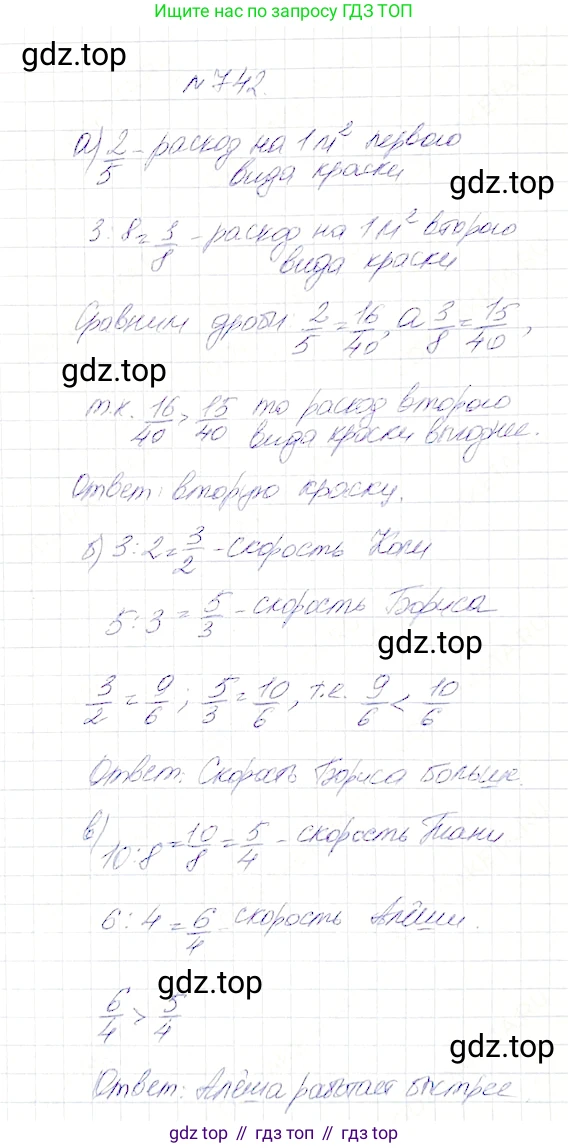 Самые качественные решения
находятся тут по запросу ГДЗ ТОП
gdz.top
№ 742.
а) 2/5 - расход на 1 м² первого
вида краски
gdz.top
3 : 8 = 3/8 - расход на 1 м² второго
вида краски
Сравним дроби 2/5 = 16/40, а 3/8 = 15/40,
gdz.top
т.к. 16/40 > 15/40 то расход второго
вида краски выгоднее.
Ответ: вторую краску.
б) 3 : 2 = 3/2 - скорость Коли
5 : 3 = 5/3 - скорость Бориса
gdz.top
3/2 = 9/6 ; 5/3 = 10/6, т.е. 9/6 < 10/6
Ответ: Скорость Бориса больше.
в) 10 : 8 = 10/8 = 5/4 - скорость Тани
6 : 4 = 6/4 скорость Алёши.
gdz.top
6/4 > 5/4
Ответ: Алёша работает быстрее.
gdz.top // гдз топ // gdz.top